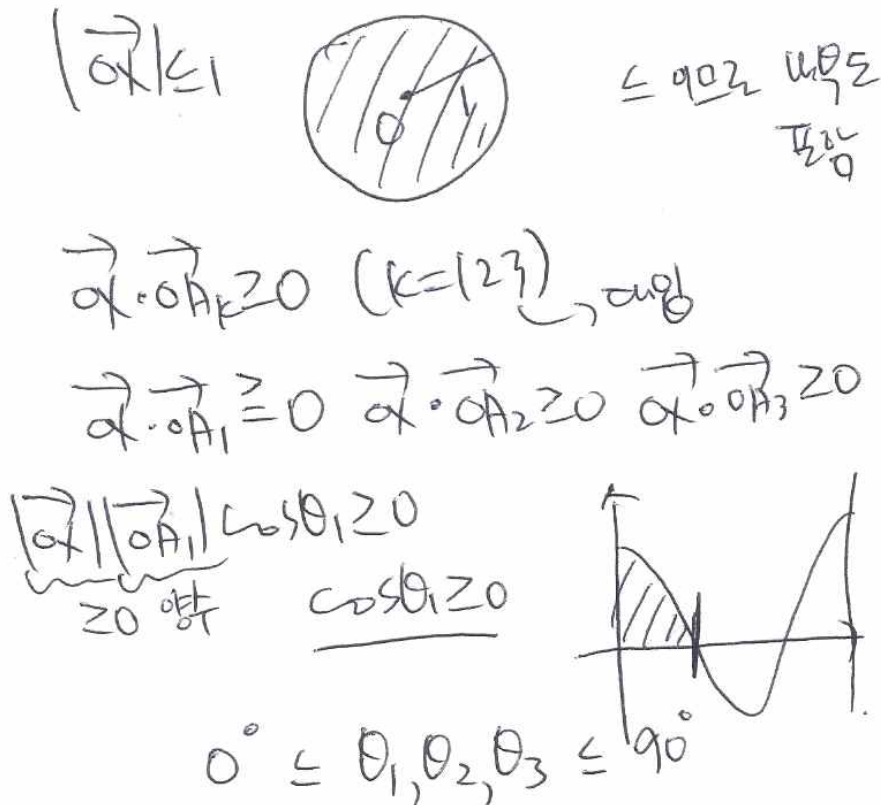 |OX|≤1
O 1
≤ 이므로 내부도
포함
OX·OA_k≥0 (k=1 2 3) 대입
OX·OA₁≥0 OX·OA₂≥0 OX·OA₃≥0
|OX||OA₁|cosθ₁≥0
≥0 양수 cosθ₁≥0
0° ≤ θ₁,θ₂,θ₃ ≤ 90°